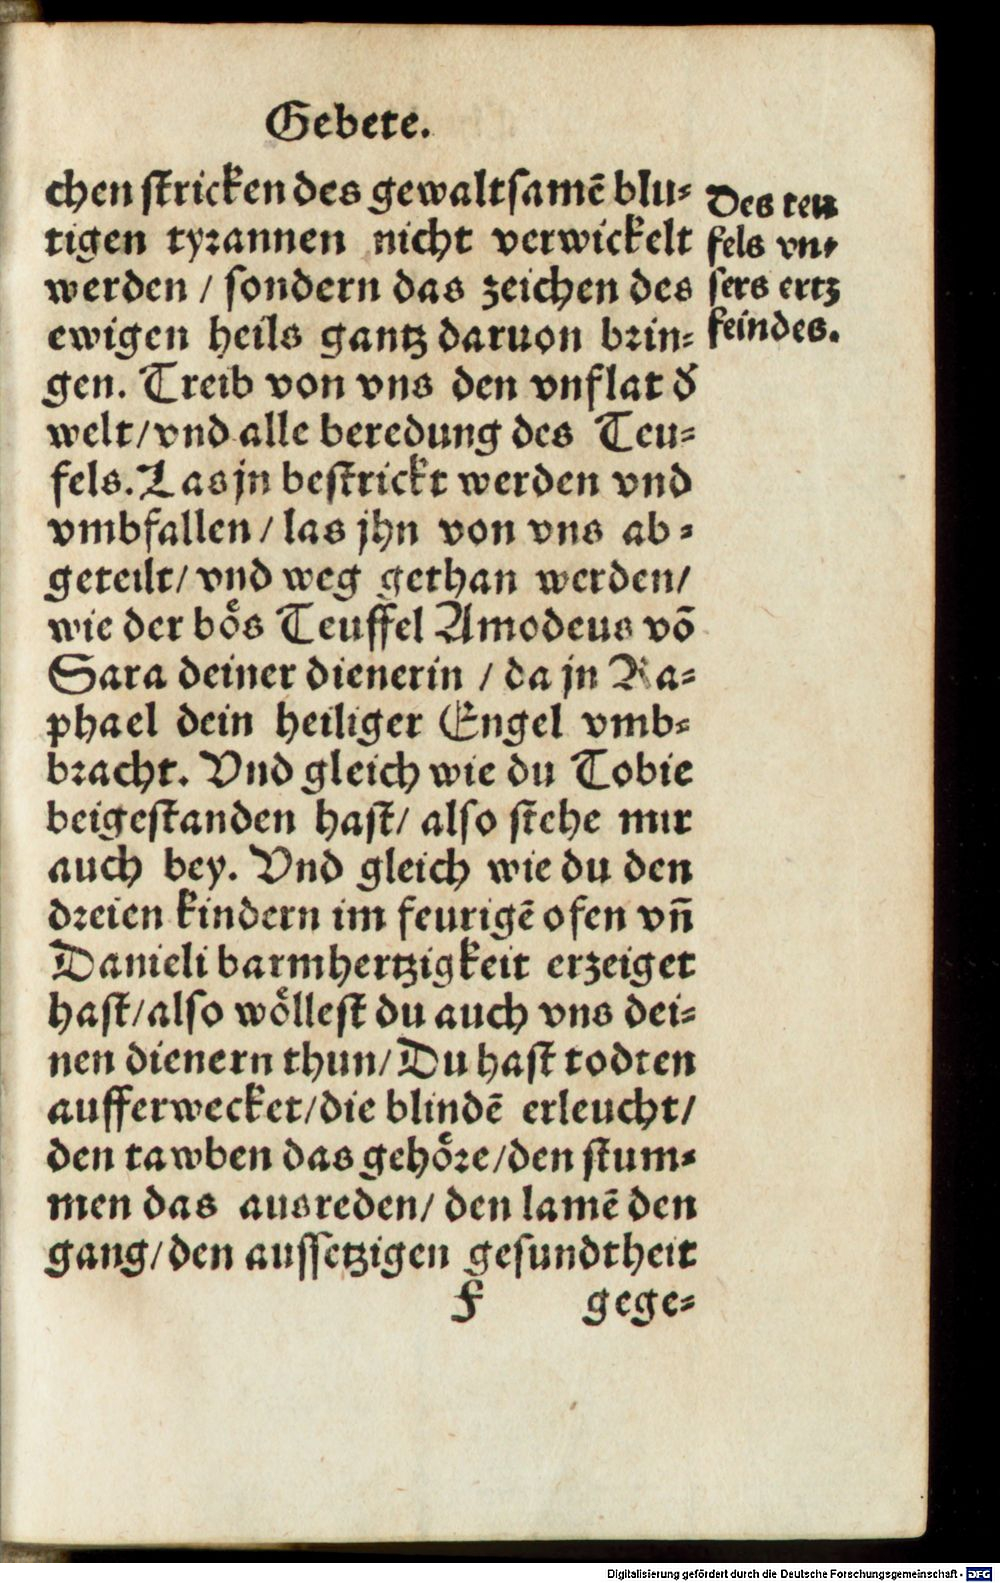 Gebete.
chen stricken des gewaltsamē blu⸗
tigen tyrannen nicht verwickelt
werden / sondern das zeichen des
ewigen heils gantz daruon brin⸗
gen. Treib von vns den vnflat d̕
welt/vnd alle beredung des Teu⸗
fels. Las jn bestrickt werden vnd
vmbfallen / las jhn von vns ab⸗
geteilt/ vnd weg gethan werden/
wie der boͤs Teuffel Amodeus vō
Sara deiner dienerin / da jn Ra⸗
phael dein heiliger Engel vmb⸗
bracht. Vnd gleich wie du Tobie
beigestanden hast/ also stehe mir
auch bey. Vnd gleich wie du den
dreien kindern im feurigē ofen vn̄
Danieli barmhertzigkeit erzeiget
hast/also woͤllest du auch vns dei⸗
nen dienern thun/Du hast todten
aufferwecket/die blindē erleucht/
den tawben das gehoͤre/den stum⸗
men das ausreden/ den lamē den
gang/den aussetzigen gesundtheit
F gege⸗
Des teu
fels vn⸗
sers ertz
feindes.
Digitalisierung gefördert durch die Deutsche Forschungsgemeinschaft - DFG